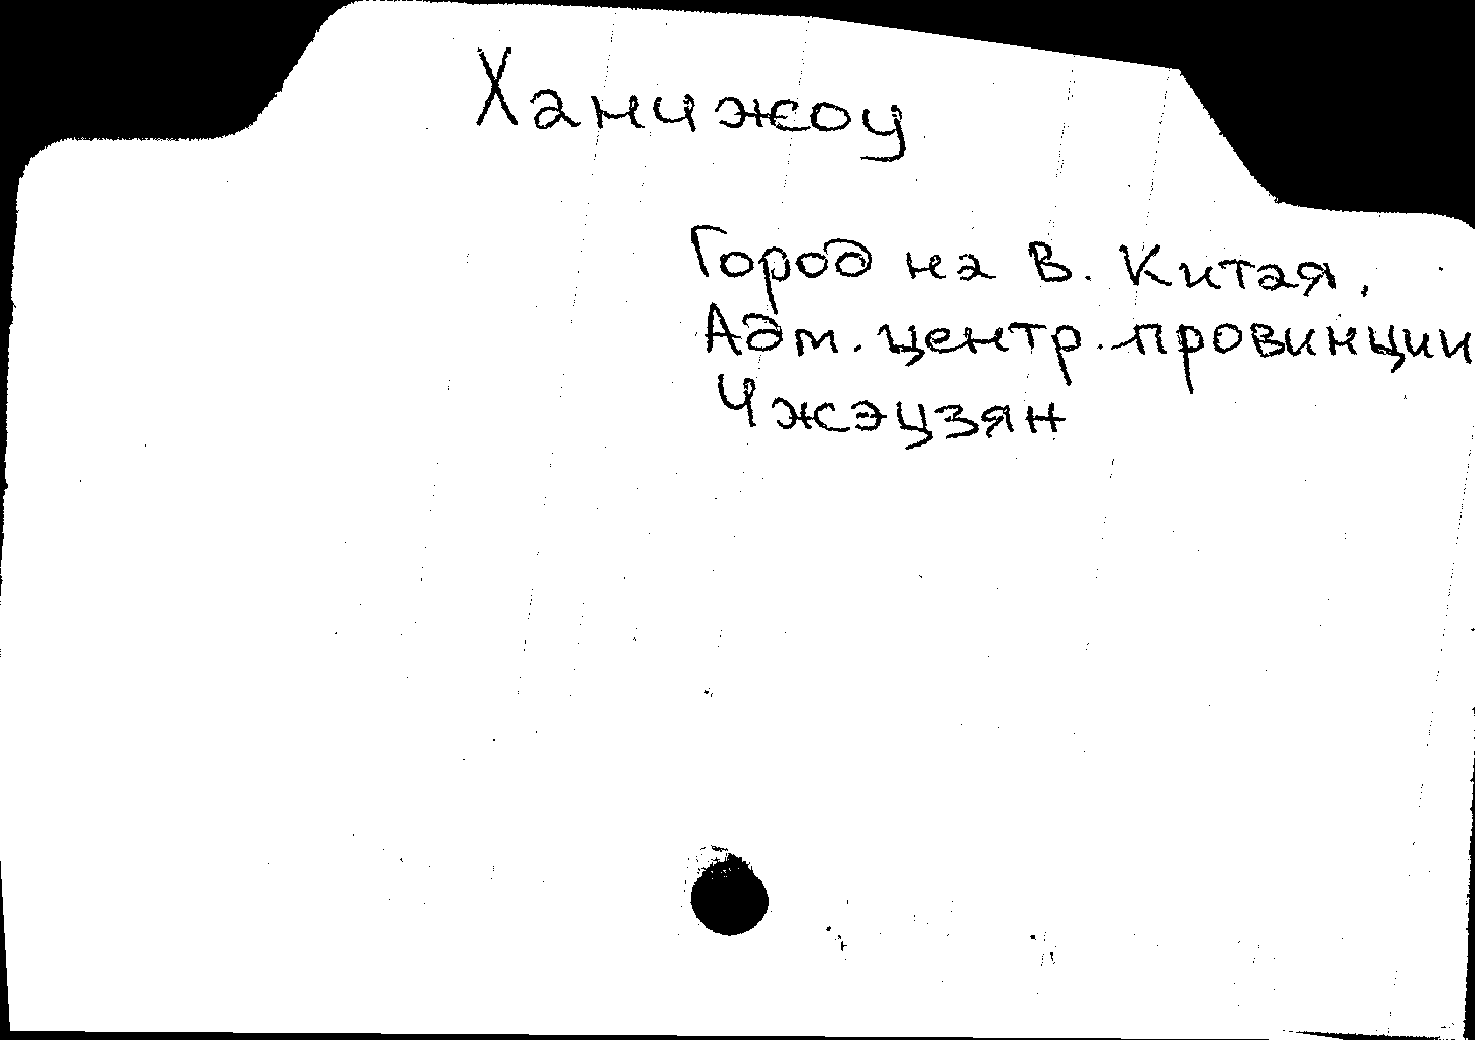 Ханчжоу
Город на В. Китая.
Адм. центр. провинции
Чжэцзян